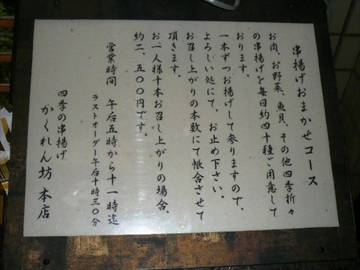 串揚げおまかせコース
お肉、お野菜、魚貝、その他四季折々
の串揚げを毎日約四十種ご用意して
おります。
一本ずつお揚げして参りますので、
よろしい処にて、お止め下さい。
お召し上がりの本数にて帳合させて
頂きます。
お一人様十本お召し上がりの場合、
約二、五〇〇円です。
営業時間　午后五時から十一時迄
ラストオーダー午后十時三〇分
四季の串揚げ
かくれん坊　本店